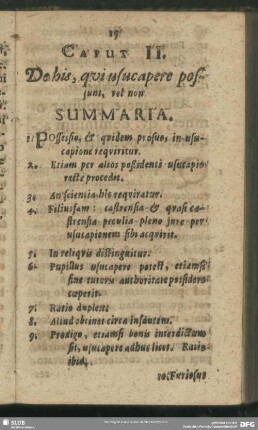 19
CAPUT II.
De his, qvi usucapere pos-
sunt, vel non
SUMMARIA.
1. Possessio, & qvidem prosuo, in usu-
capione reqviritur.
2. Etiam per alios possidenti usucapio
recte procedit.
3. An scientia his reqviratur.
4. Filiusfam: castrensia & qvasi ca-
strensia peculia pleno jure per
usucapionem sibi acqvirit.
5. In reliqvis distingvitur.
6. Pupillus usucapere potest, etiamsi
sine tutoris authoritate possidere
cœperit.
7. Ratio duplex:
8. Aliud obtinet circa infantem.
9. Prodigo, etiamsi bonis interdictum
sit, usucapere adhuc licet. Ratio
ibid.
10. Furiosus
SLUB
DFG